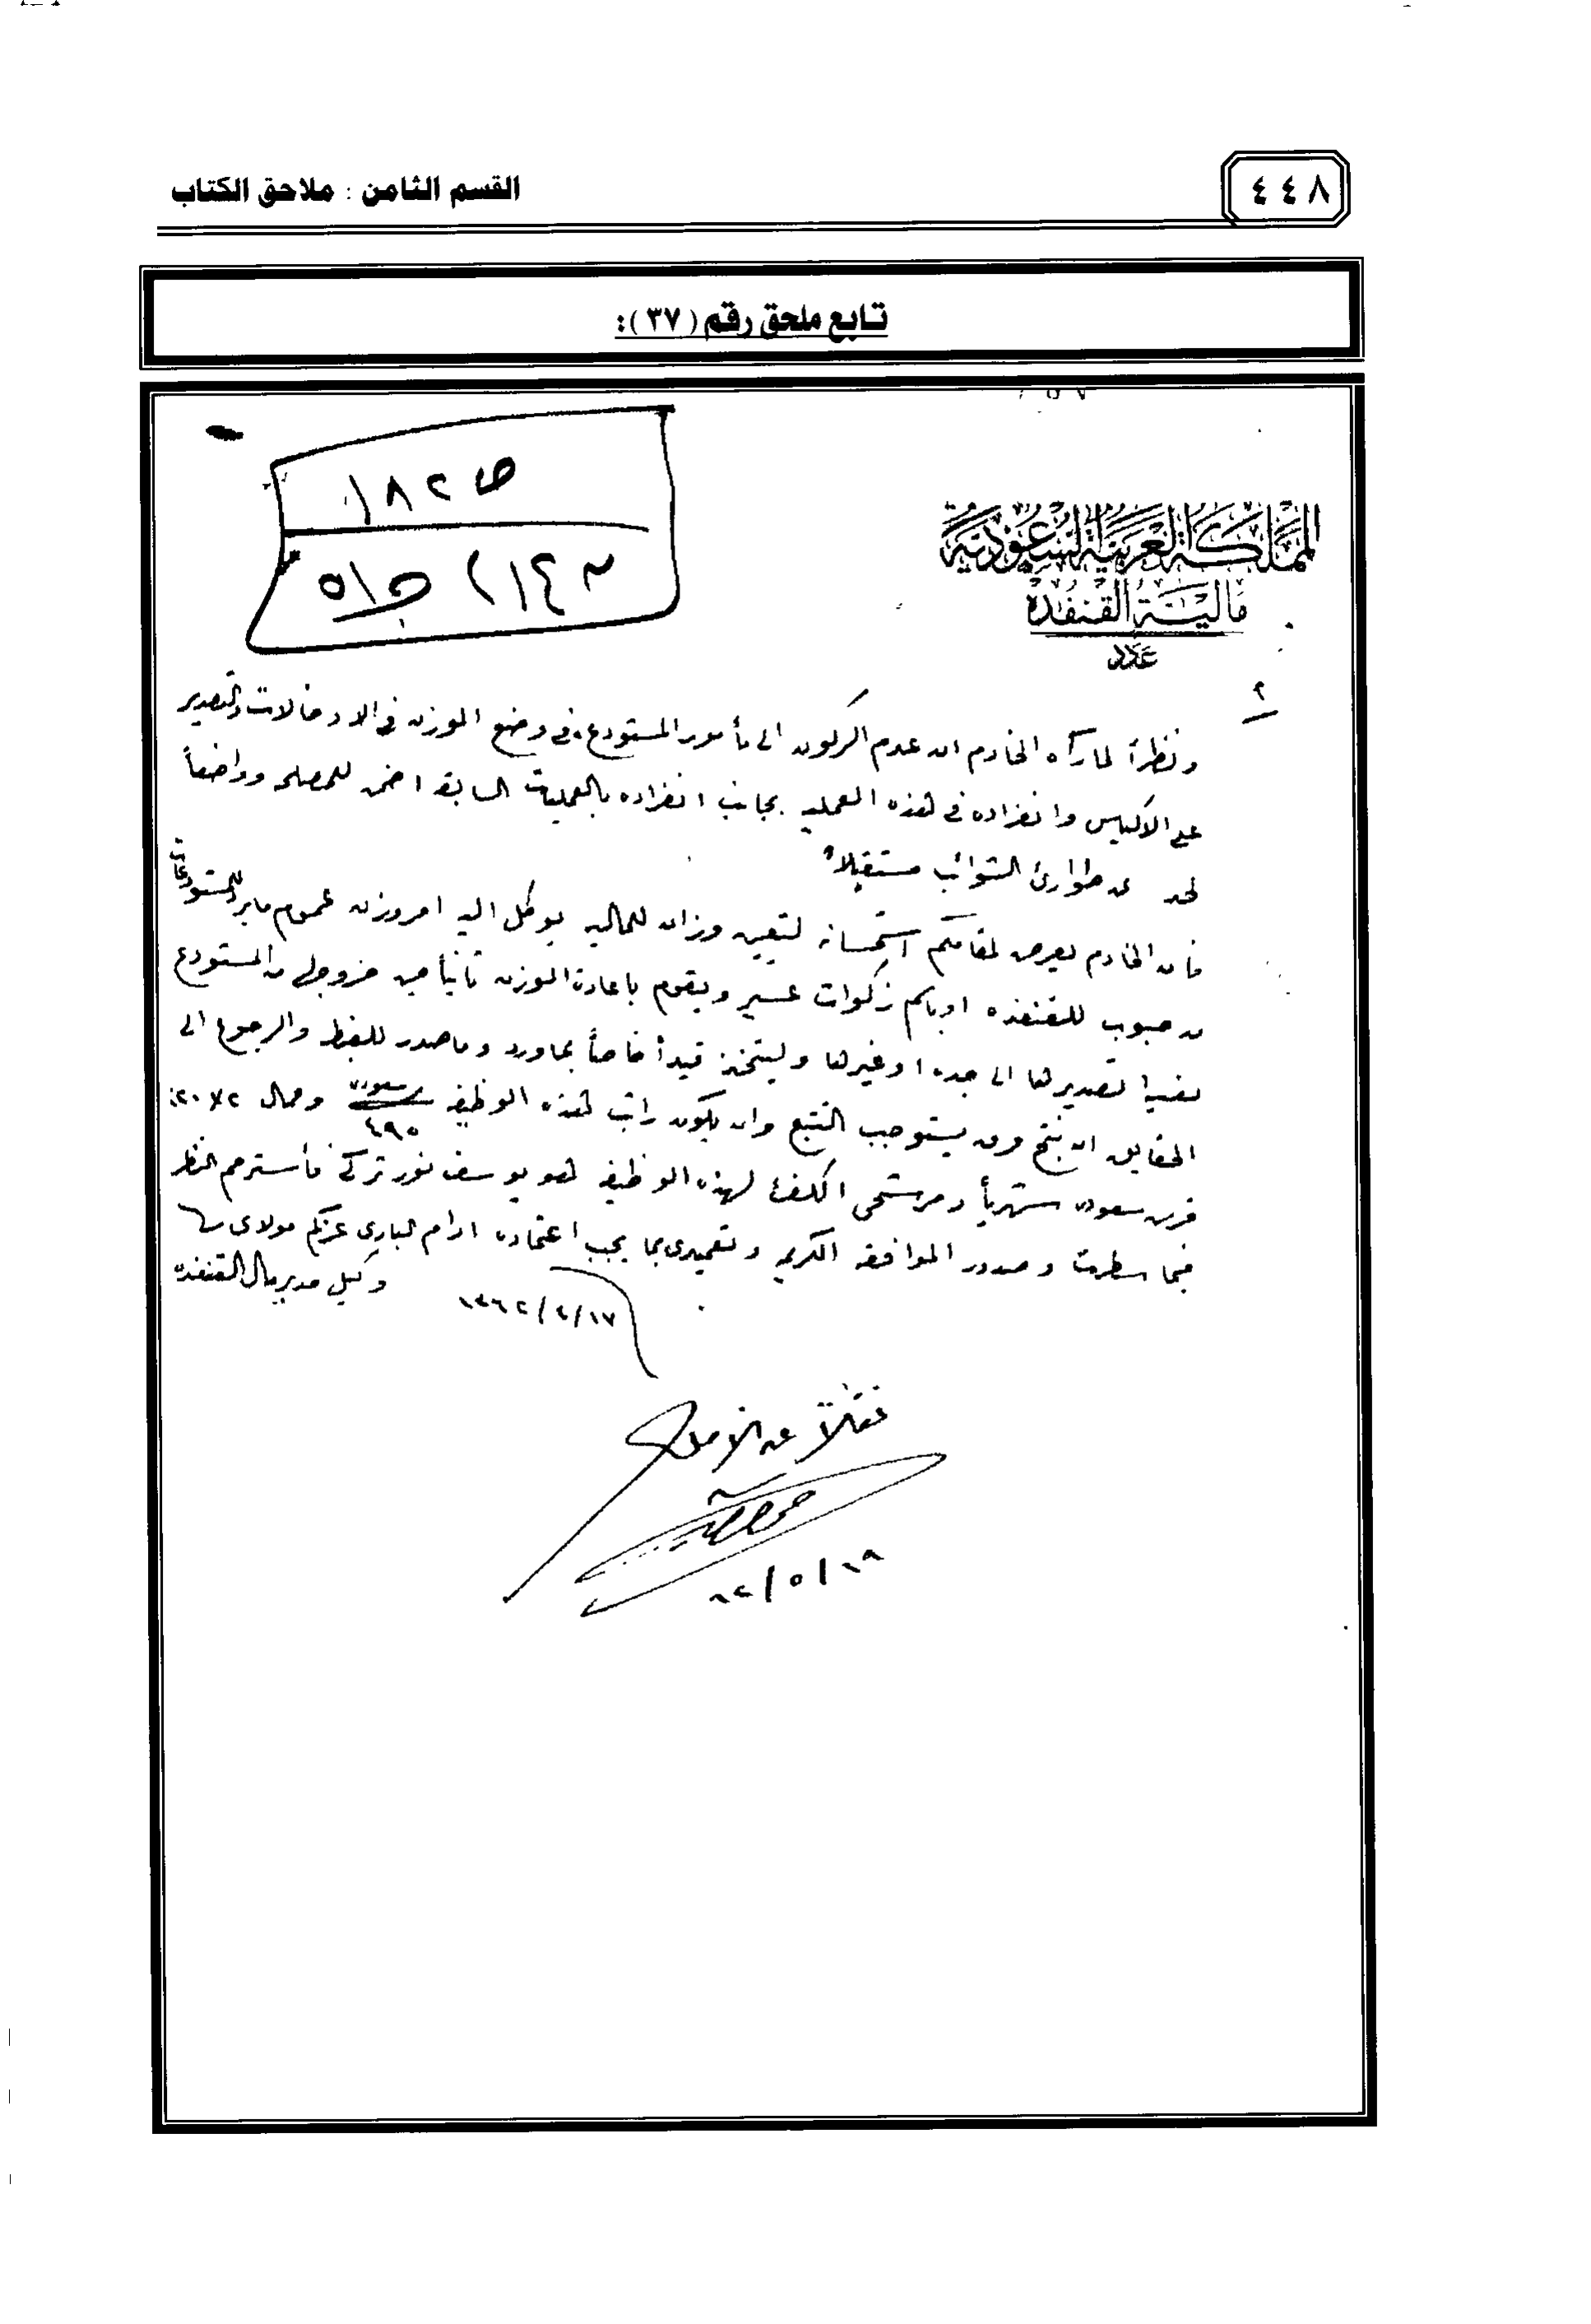 ٤٤٨
القسم الثامن : ملاحق الكتاب
تابع ملحق رقم (٣٧):
ص ١٨٢
المملكة العربية السعودية
مالية القنفدة
عدد
٢
ونظراً لما رآه الخادم ان عدم الركون الى مأمور المستودع في وضع الموزن في الادخالات والتصدير
على الاكياس وانفراده في هذه العمليه بجانب انفراده بالعمليات السابقه اضمن للمصلحه وواضعاً
لحد عن طوارئ الشوائب مستقبلاً
فان الخادم يعرض لمقامكم استحسانه لتعيين وزان للماليه يوكل اليه امر وزن عموم ما يرد للمستودعات
من حبوب للقنفذه او باسم زكوات عسير ويقوم باعادة الموزن ثانياً حين خروجها من المستودع
تصديرها الى جده او غيرها وليتخذ قيداً خاصاً بما ورد وما صدر للضبط والرجوع الى
الحقايق ان نتج فرق يستوجب التتبع وان يكون راتب هذه الوظيفه
سعودى
٤٩٥
قرش سعودى شهرياً ومرشحى الكفؤ لهذه الوظيفه هو يوسف نور تركى فأسترحم النظر
فيما سطرت وصدور الموافقه الكريمه وتعميدى بما يجب اعتماده ادام البارى عزكم مولاى
وكيل مدير مال القنفذه
١٣٦٢/٤/١٧
نقلاً عن الاصل
٦٢/٥/١٩